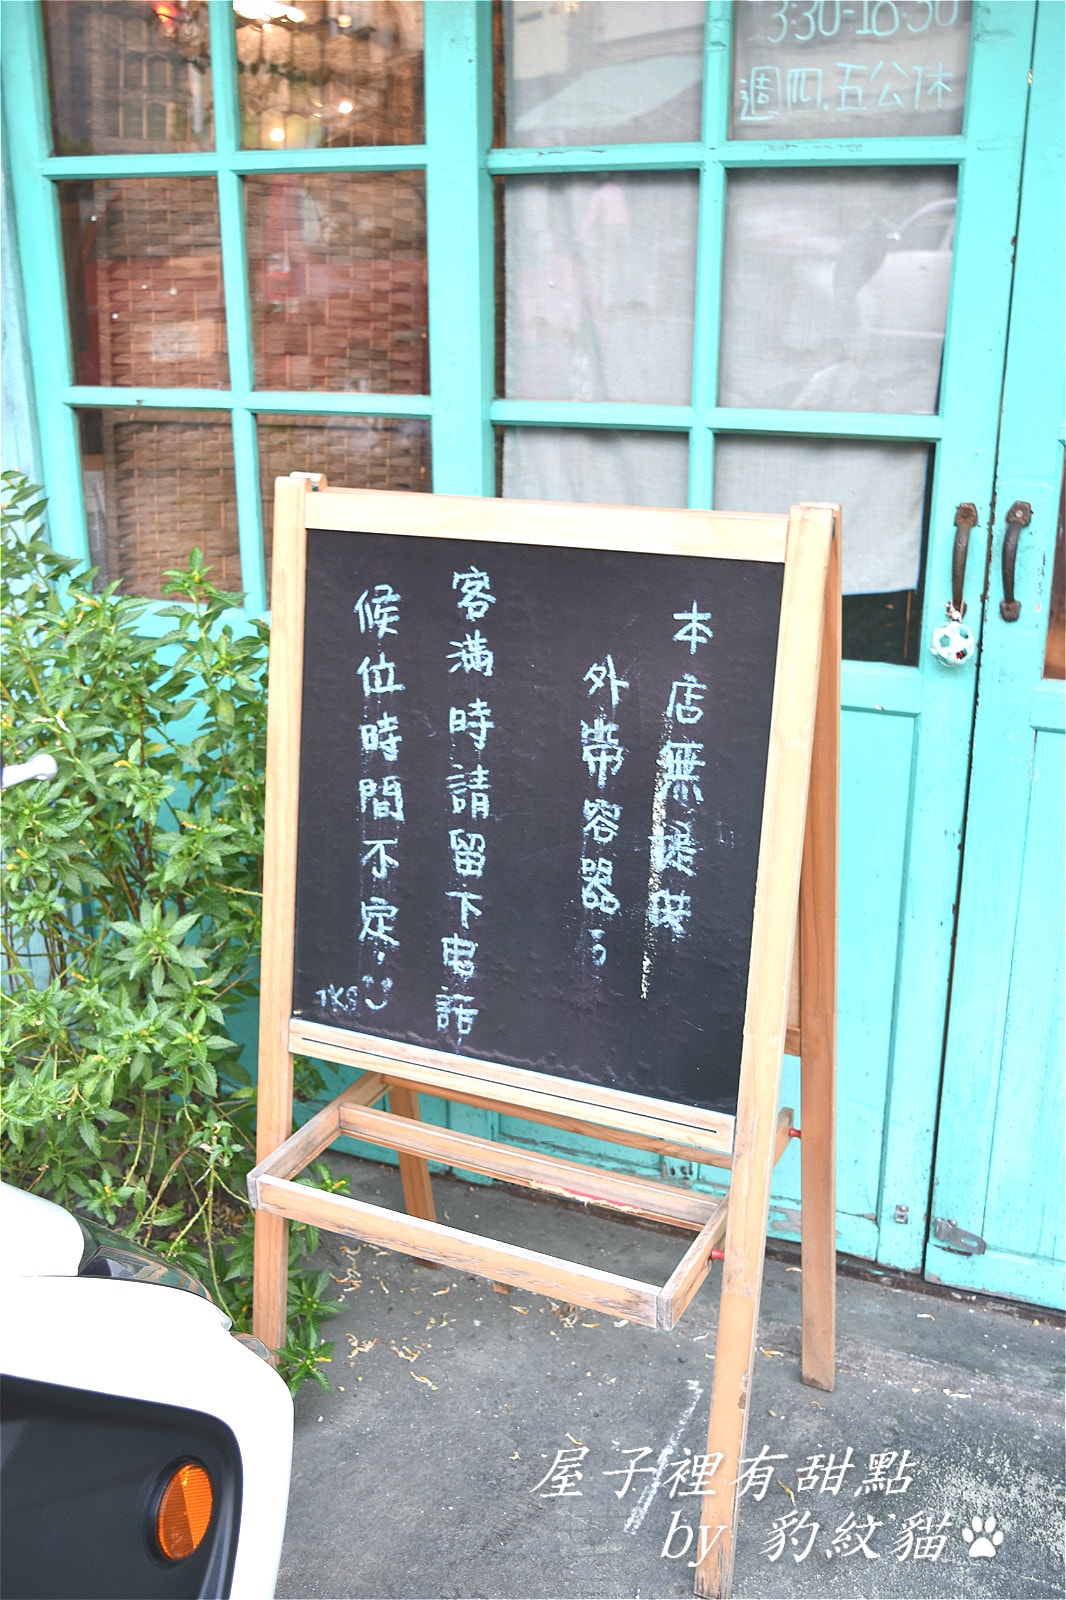 3:30-18:30
週四.五公休
本店無提供
外帶容器,
客滿時請留下電話,
候位時間不定,
TKS
屋子裡有甜點
by 豹紋貓